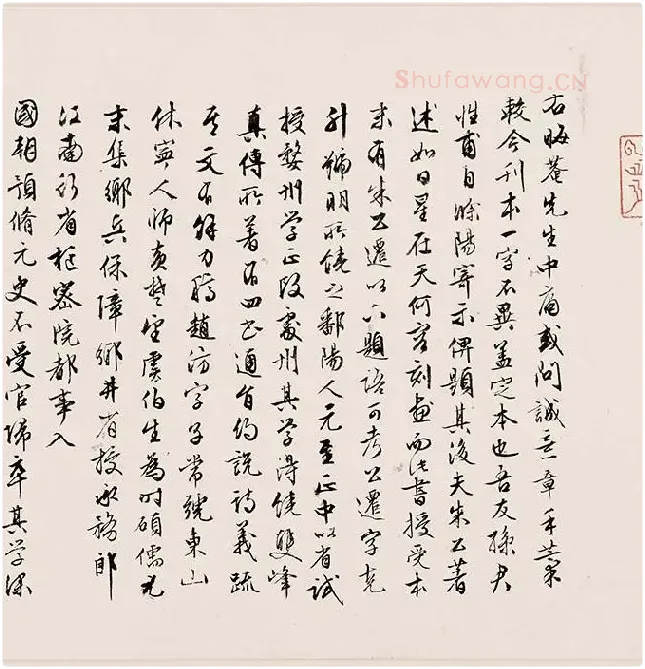 右晦菴先生中庸或問誠意章手藁
較今刊本一字不異蓋定本也吾友孫君
性甫自滁陽寄示俾題其後夫朱公著
述如日星在天何容刻畫而此書授受本
末有朱公遷以下題語可考公遷字克
升號明所饒之鄱陽人元至正中以省試
授婺州學正改處州其學得饒雙峰
真傳所著有四書通旨約說詩義疏
其文有餘力焉趙汸字子常號東山
休寧人師黃楚望虞伯生為時碩儒元
末集鄉兵保障鄉井省授承務郎
江南行省樞密院都事入
國朝預脩元史不受官歸卒其學深
Shufawang.CN